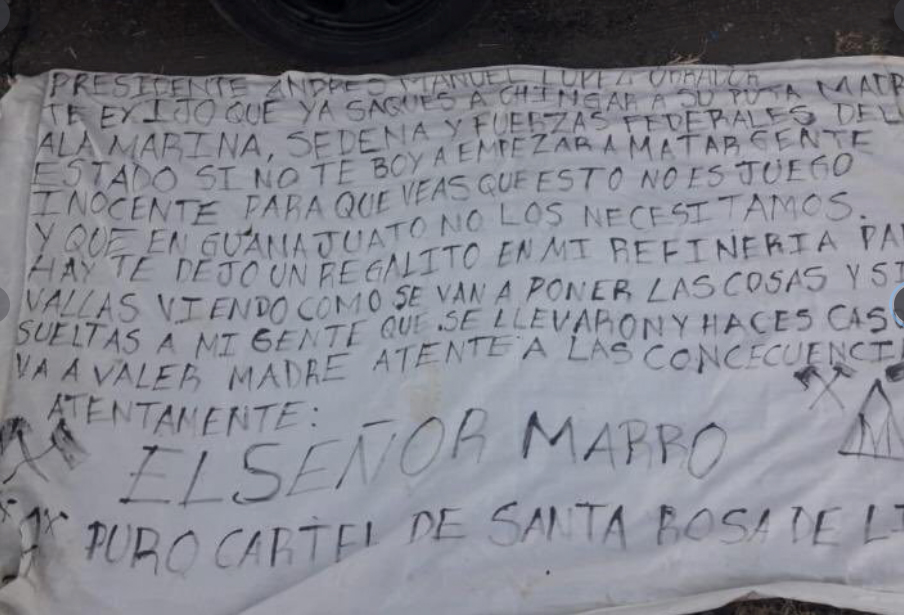 PRESIDENTE ANDRES MANUEL LOPEZ OBRADOR
TE EXIJO QUE YA SAQUES A CHINGAR A SU PUTA MADR
ALA MARINA, SEDENA Y FUERZAS FEDERALES DEL
ESTADO SI NO TE BOY A EMPEZAR A MATAR GENTE
INOCENTE PARA QUE VEAS QUE ESTO NO ES JUEGO
Y QUE EN GUANAJUATO NO LOS NECESITAMOS.
HAY TE DEJO UN REGALITO EN MI REFINERIA PA
VALLAS VIENDO COMO SE VAN A PONER LAS COSAS Y SI
SUELTAS A MI GENTE QUE SE LLEVARON Y HACES CAS
VA A VALER MADRE ATENTE A LAS CONCECUENCI
ATENTAMENTE:
EL SEÑOR MARRO
PURO CARTEL DE SANTA ROSA DE LI